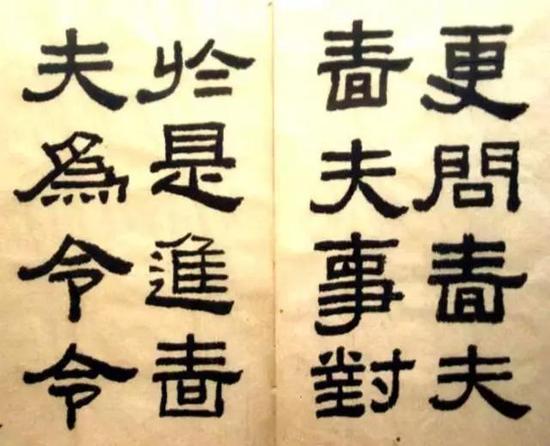 更問啬夫
啬夫事對
於是進啬
夫為令令